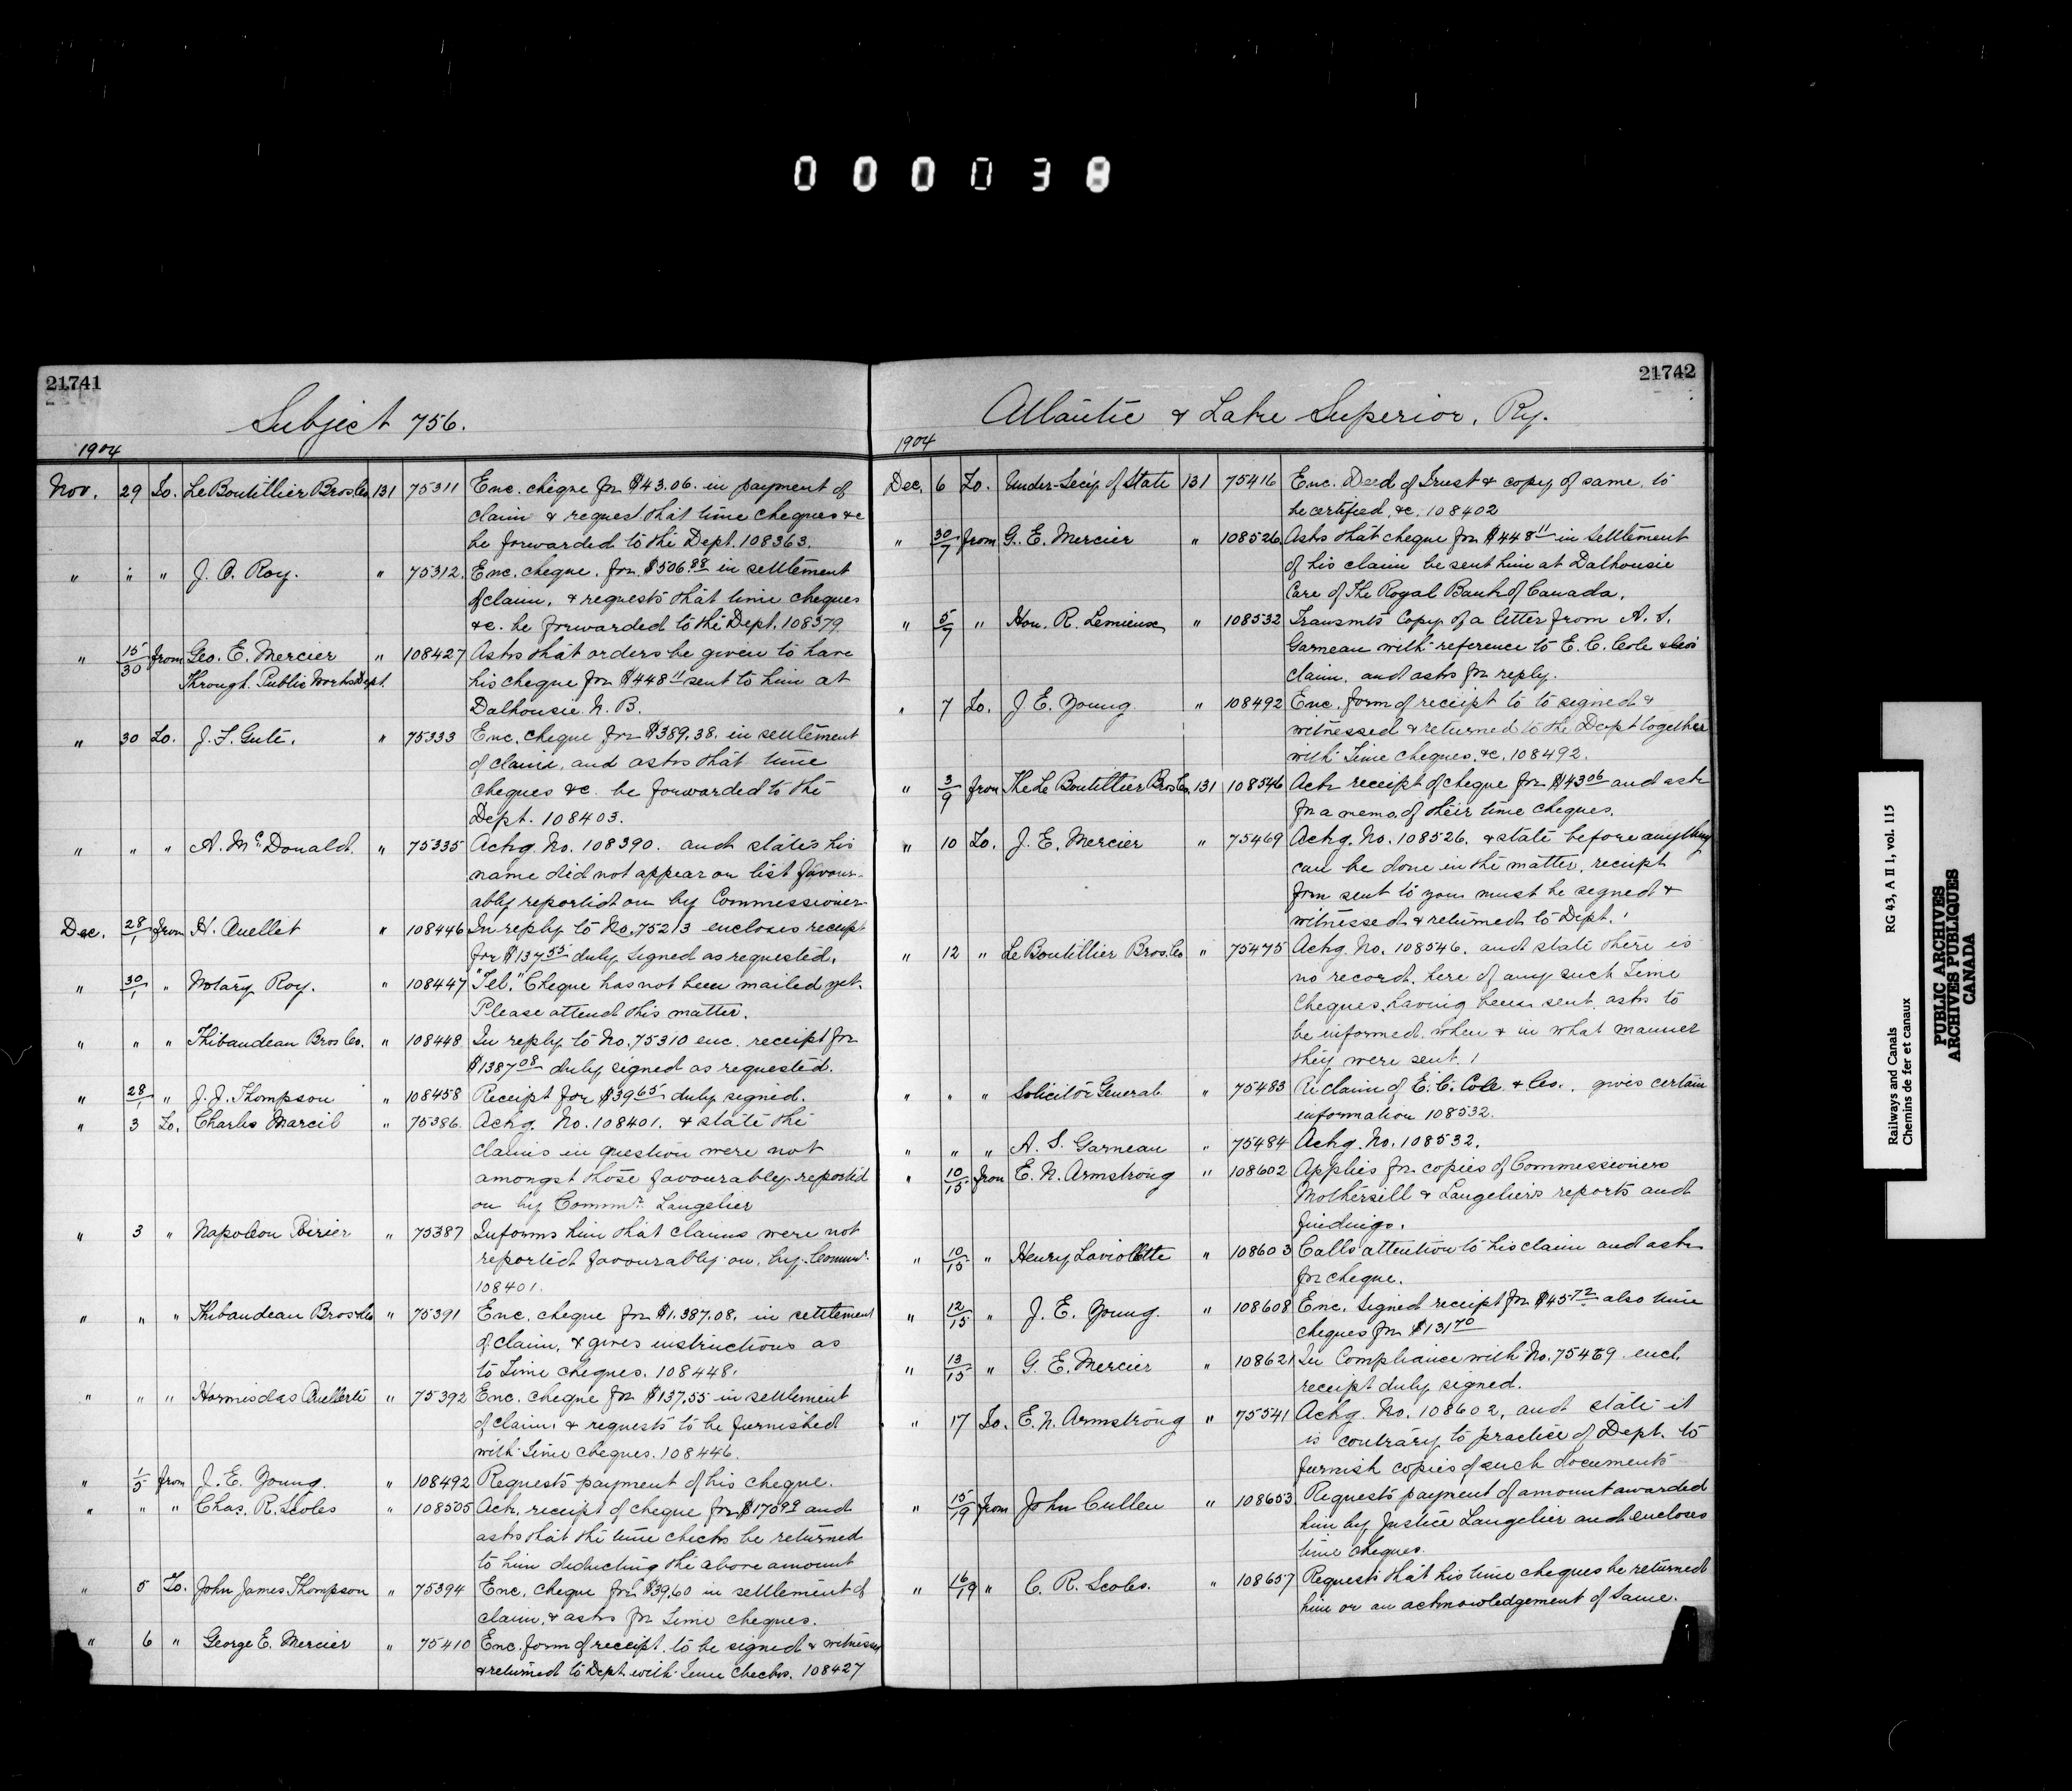 000038
21741
Subject 756.
1904
Nov. 29 To. LeBoutillier Bros Co 131 75311 Enc. cheque for $43.06. in payment of
claim & request that time cheques &c
be forwarded to the Dept. 108363.
" " " J. C. Roy. " 75312. Enc. cheque. for $506.88 in settlement
of claim, & requests that time cheques
&c. be forwarded to the Dept. 108379.
" 15/30 from Geo. E. Mercier " 108427 Asks that orders be given to have
Through Public Works Dept. his cheque for $448 11 sent to him at
Dalhousie N. B.
" 30 To. J. F. Guité. " 75333 Enc. cheque for $389.38. in settlement
of claim, and asks that time
cheques &c. be forwarded to the
Dept. 108403.
" " " A. McDonald. " 75335 Ackg. No. 108390. and states his
name did not appear on list favour-
ably reported on by Commissioner
Dec. 28/1 from H. Ouellet " 108446 In reply to No. 75213 encloses receipt
for $137 55 duly signed as requested.
" 30/1 " Notary Roy. " 108447 "Tel." Cheque has not been mailed yet.
Please attend this matter.
" " " Thibaudeau Bros Co. " 108448 In reply to No. 75310 enc. receipt for
$1387 08 duly signed as requested.
" 28/1 " J. J. Thompson " 108458 Receipt for $39 65 duly signed.
" 3 To. Charles Marcil " 75386. Ackg. No. 108401. & state the
claims in question were not
amongst those favourably reported
on by Commr. Langelier
" 3 " Napoleon Poirier " 75387 Informs him that claims were not
reported favourably on, by Commr.
108401.
" " " Thibaudeau Bros & Co " 75391 Enc. cheque for $1.387.08. in settlement
of claim, & gives instructions as
to Time cheques. 108448.
" " " Hormisdas " 75392 Enc. cheque for $137.55 in settlement
of claim, & requests to be furnished
with time cheques. 108446.
" 1/5 from J. E. Young. " 108492 Requests payment of his cheque.
" " " Chas. R. Scoles " 108505 Ack. receipt of cheque for $170 99 and
asks that the time checks be returned
to him deducting the above amount
" 5 To. John James Thompson " 75394 Enc. cheque for $39.60 in settlement of
claim, & asks for time cheques.
" 6 " George E. Mercier " 75410 Enc. form of receipt. to be signed & witnessed
& returned to Dept. with time checks. 108427
21742
Atlantic & Lake Superior, Ry.
1904
Dec. 6 To. Under-Sec'y of State 131 75416 Enc. Deed of Trust & copy of same. to
be certified, &c. 108402
" 30/7 from G. E. Mercier " 108526. Asks that cheque for $448 11 in settlement
of his claim be sent him at Dalhousie
Care of The Royal Bank of Canada.
" 5/7 " Hon. R. Lemieux " 108532 Transmits Copy of a letter from A. S.
Garneau with reference to E. C. Cole & Co's
claim, and asks for reply.
" 7 To. J. E. Young " 108492 Enc. form of receipt to to signed &
witnessed & returned to the Dept together
with Time cheques, &c. 108492.
" 3/9 from The Le Boutillier Bros Co. 131 108546 Ack receipt of cheque for $43 06 and ask
for a memo. of their time cheques.
" 10 To. J. E. Mercier " 75469 Ackg. No. 108526. & state before anything
can be done in the matter, receipt
form sent to you must be signed &
witnessed & returned to Dept.
" 12 " Le Boutillier Bros. Co " 75475 Ackg. No. 108546. and state there is
no record. here of any such Time
Cheques, having been sent. asks to
be informed. when & in what manner
they were sent.
" " " Solicitor General. " 75483 Re claim of E. C. Cole & Co. . gives certain
information 108532.
" " " A. S. Garneau " 75484 Ackg. No. 108532.
" 10/15 from E. N. Armstrong " 108602 Applies for copies of Commissioners
Mothersill & Langeliers reports and
findings.
" 10/15 " Henry Laviolette " 108603 Calls attention to his claim and asks
for cheque.
" 12/15 " J. E. Young. " 108608 Enc. signed receipt for $45 72 also time
cheques for $131 70
" 13/15 " G. E. Mercier " 108621 In Compliance with No. 75469 encl.
receipt duly signed.
" 17 To. E. N. Armstrong " 75541 Ackg. No. 108602, and state it
is contrary to practice of Dept. to
furnish copies of such documents
" 15/19 from John Cullen " 108653 Requests payment of amount awarded
him by Justice Langelier and encloses
time cheques.
" 16/19 " C. R. Scoles. " 108657 Requests that his time cheques be returned
him or an acknowledgement of same.
Railways and Canals RG 43, A II 1, vol. 115
Chemins de fer et canaux
PUBLIC ARCHIVES
ARCHIVES PUBLIQUES
CANADA